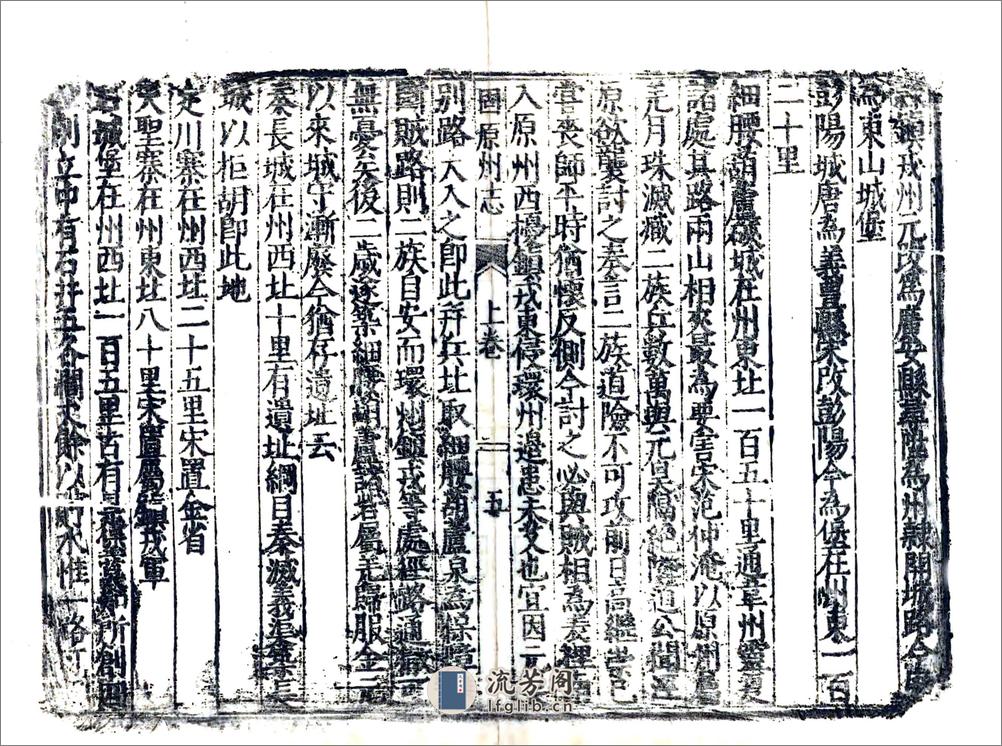 鎮戎州元改爲廣安縣尋陞爲州隸開城路今
爲東山城堡
彭陽城唐爲義豐縣宋改彭陽今爲堡在州東一百
二十里
細腰葫蘆城在州東北一百五十里通韋州靈
諸處其路兩山相夾最爲要害宋范仲淹以原州屬
羌月珠滅臧二族兵數萬與元昊隔絕隣道公聞
原欲襲討之奏言二族道險不可攻前日高繼嵩已
嘗喪師平時猶懷反側今討之必與賊相爲表裡
入原州西擾鎮戎東侵環州邊患未艾也宜因元
固原州志 上卷 五
別路大入之即此并兵北取細腰葫蘆泉爲綜障
賊路則二族自安而環州鎮戎等處經路通徹可
無憂矣後二歲遂築細腰葫蘆諸砦屬羌歸服金元
以來城守漸廢今猶存遺址云
秦長城在州西北十里有遺址綱目秦滅義渠築長
城以拒胡即此地
定川寨在州西北二十五里宋置金省
天聖寨在州東北八十里宋置屬鎮戎軍
城堡在州西北一百五里古有 所創四
削立中有石井五 餘以 水惟一路可
流芳阁
lfglib.cn